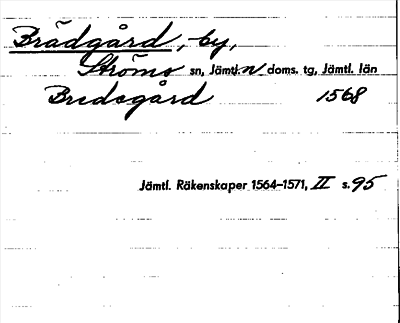 Brädgård, by,
Ströms sn, Jämtl. n doms. tg, Jämtl. län
Bredsgård 1568
Jämtl. Räkenskaper 1564–1571, II s. 95